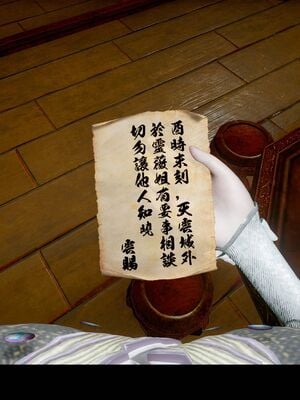 酉時末刻，天雲城外
於靈薇姐有要事相談
切勿讓他人知曉
雲賜